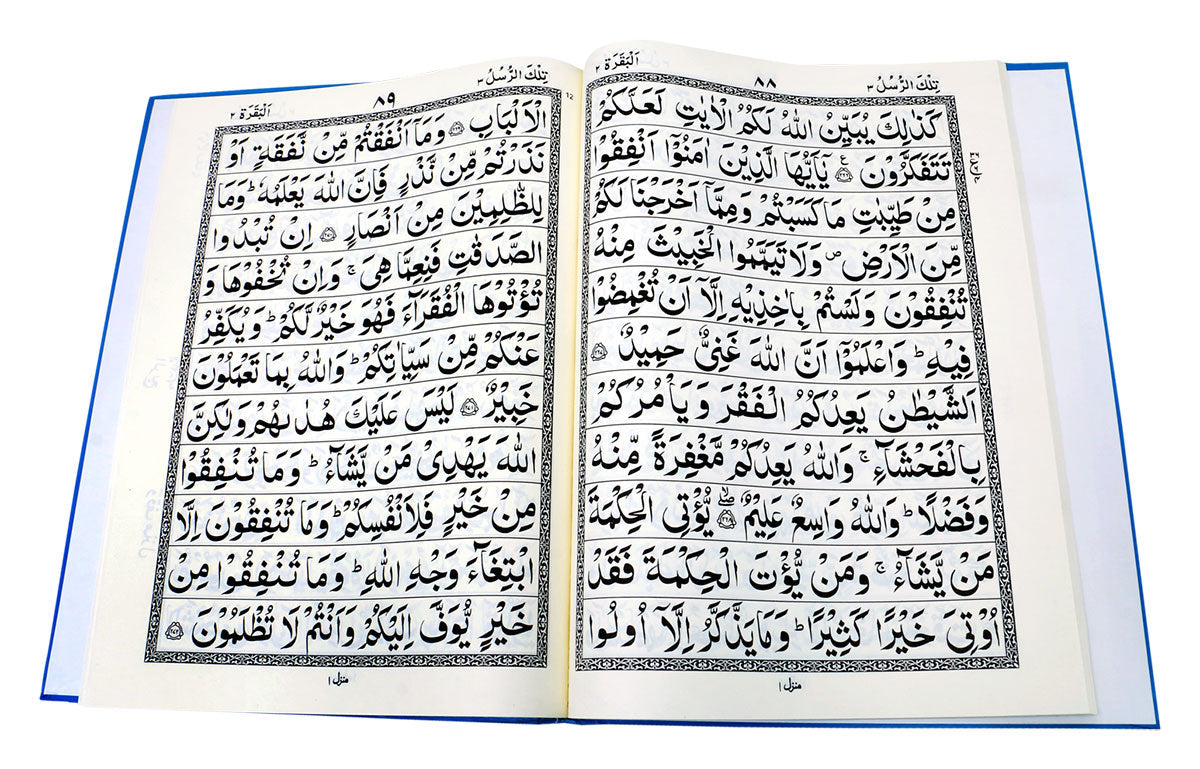 تِلْكَ الرُّسُلُ ٣
٨٨
اَلْبَقَرَة ٢
كَذٰلِكَ يُبَيِّنُ اللّٰهُ لَكُمُ الْاٰيٰتِ لَعَلَّكُمْ
تَتَفَكَّرُوْنَ ۝ يٰۤاَيُّهَا الَّذِيْنَ اٰمَنُوْۤا اَنْفِقُوْا
مِنْ طَيِّبٰتِ مَا كَسَبْتُمْ وَمِمَّاۤ اَخْرَجْنَا لَكُمْ
مِّنَ الْاَرْضِ ۪ وَلَا تَيَمَّمُوا الْخَبِيْثَ مِنْهُ
تُنْفِقُوْنَ وَلَسْتُمْ بِاٰخِذِيْهِ اِلَّاۤ اَنْ تُغْمِضُوْا
فِيْهِ ؕ وَاعْلَمُوْۤا اَنَّ اللّٰهَ غَنِيٌّ حَمِيْدٌ ۝
اَلشَّيْطٰنُ يَعِدُكُمُ الْفَقْرَ وَيَاْمُرُكُمْ
بِالْفَحْشَآءِ ۚ وَاللّٰهُ يَعِدُكُمْ مَّغْفِرَةً مِّنْهُ
وَفَضْلًا ؕ وَاللّٰهُ وَاسِعٌ عَلِيْمٌ ۝ يُّؤْتِى الْحِكْمَةَ
مَنْ يَّشَآءُ ۚ وَمَنْ يُّؤْتَ الْحِكْمَةَ فَقَدْ
اُوْتِيَ خَيْرًا كَثِيْرًا ؕ وَمَا يَذَّكَّرُ اِلَّاۤ اُولُوا
منزل ١
اَلْبَقَرَة ٢
٨٩
تِلْكَ الرُّسُلُ ٣
12
الْاَلْبَابِ ۝ وَمَاۤ اَنْفَقْتُمْ مِّنْ نَّفَقَةٍ اَوْ
نَذَرْتُمْ مِّنْ نَّذْرٍ فَاِنَّ اللّٰهَ يَعْلَمُهٗ ؕ وَمَا
لِلظّٰلِمِيْنَ مِنْ اَنْصَارٍ ۝ اِنْ تُبْدُوا
الصَّدَقٰتِ فَنِعِمَّا هِيَ ۚ وَاِنْ تُخْفُوْهَا وَ
تُؤْتُوْهَا الْفُقَرَآءَ فَهُوَ خَيْرٌ لَّكُمْ ؕ وَيُكَفِّرُ
عَنْكُمْ مِّنْ سَيِّاٰتِكُمْ ؕ وَاللّٰهُ بِمَا تَعْمَلُوْنَ
خَبِيْرٌ ۝ لَيْسَ عَلَيْكَ هُدٰىهُمْ وَلٰكِنَّ
اللّٰهَ يَهْدِيْ مَنْ يَّشَآءُ ؕ وَمَا تُنْفِقُوْا
مِنْ خَيْرٍ فَلِاَنْفُسِكُمْ ؕ وَمَا تُنْفِقُوْنَ اِلَّا
ابْتِغَآءَ وَجْهِ اللّٰهِ ؕ وَمَا تُنْفِقُوْا مِنْ
خَيْرٍ يُّوَفَّ اِلَيْكُمْ وَاَنْتُمْ لَا تُظْلَمُوْنَ ۝
منزل ١